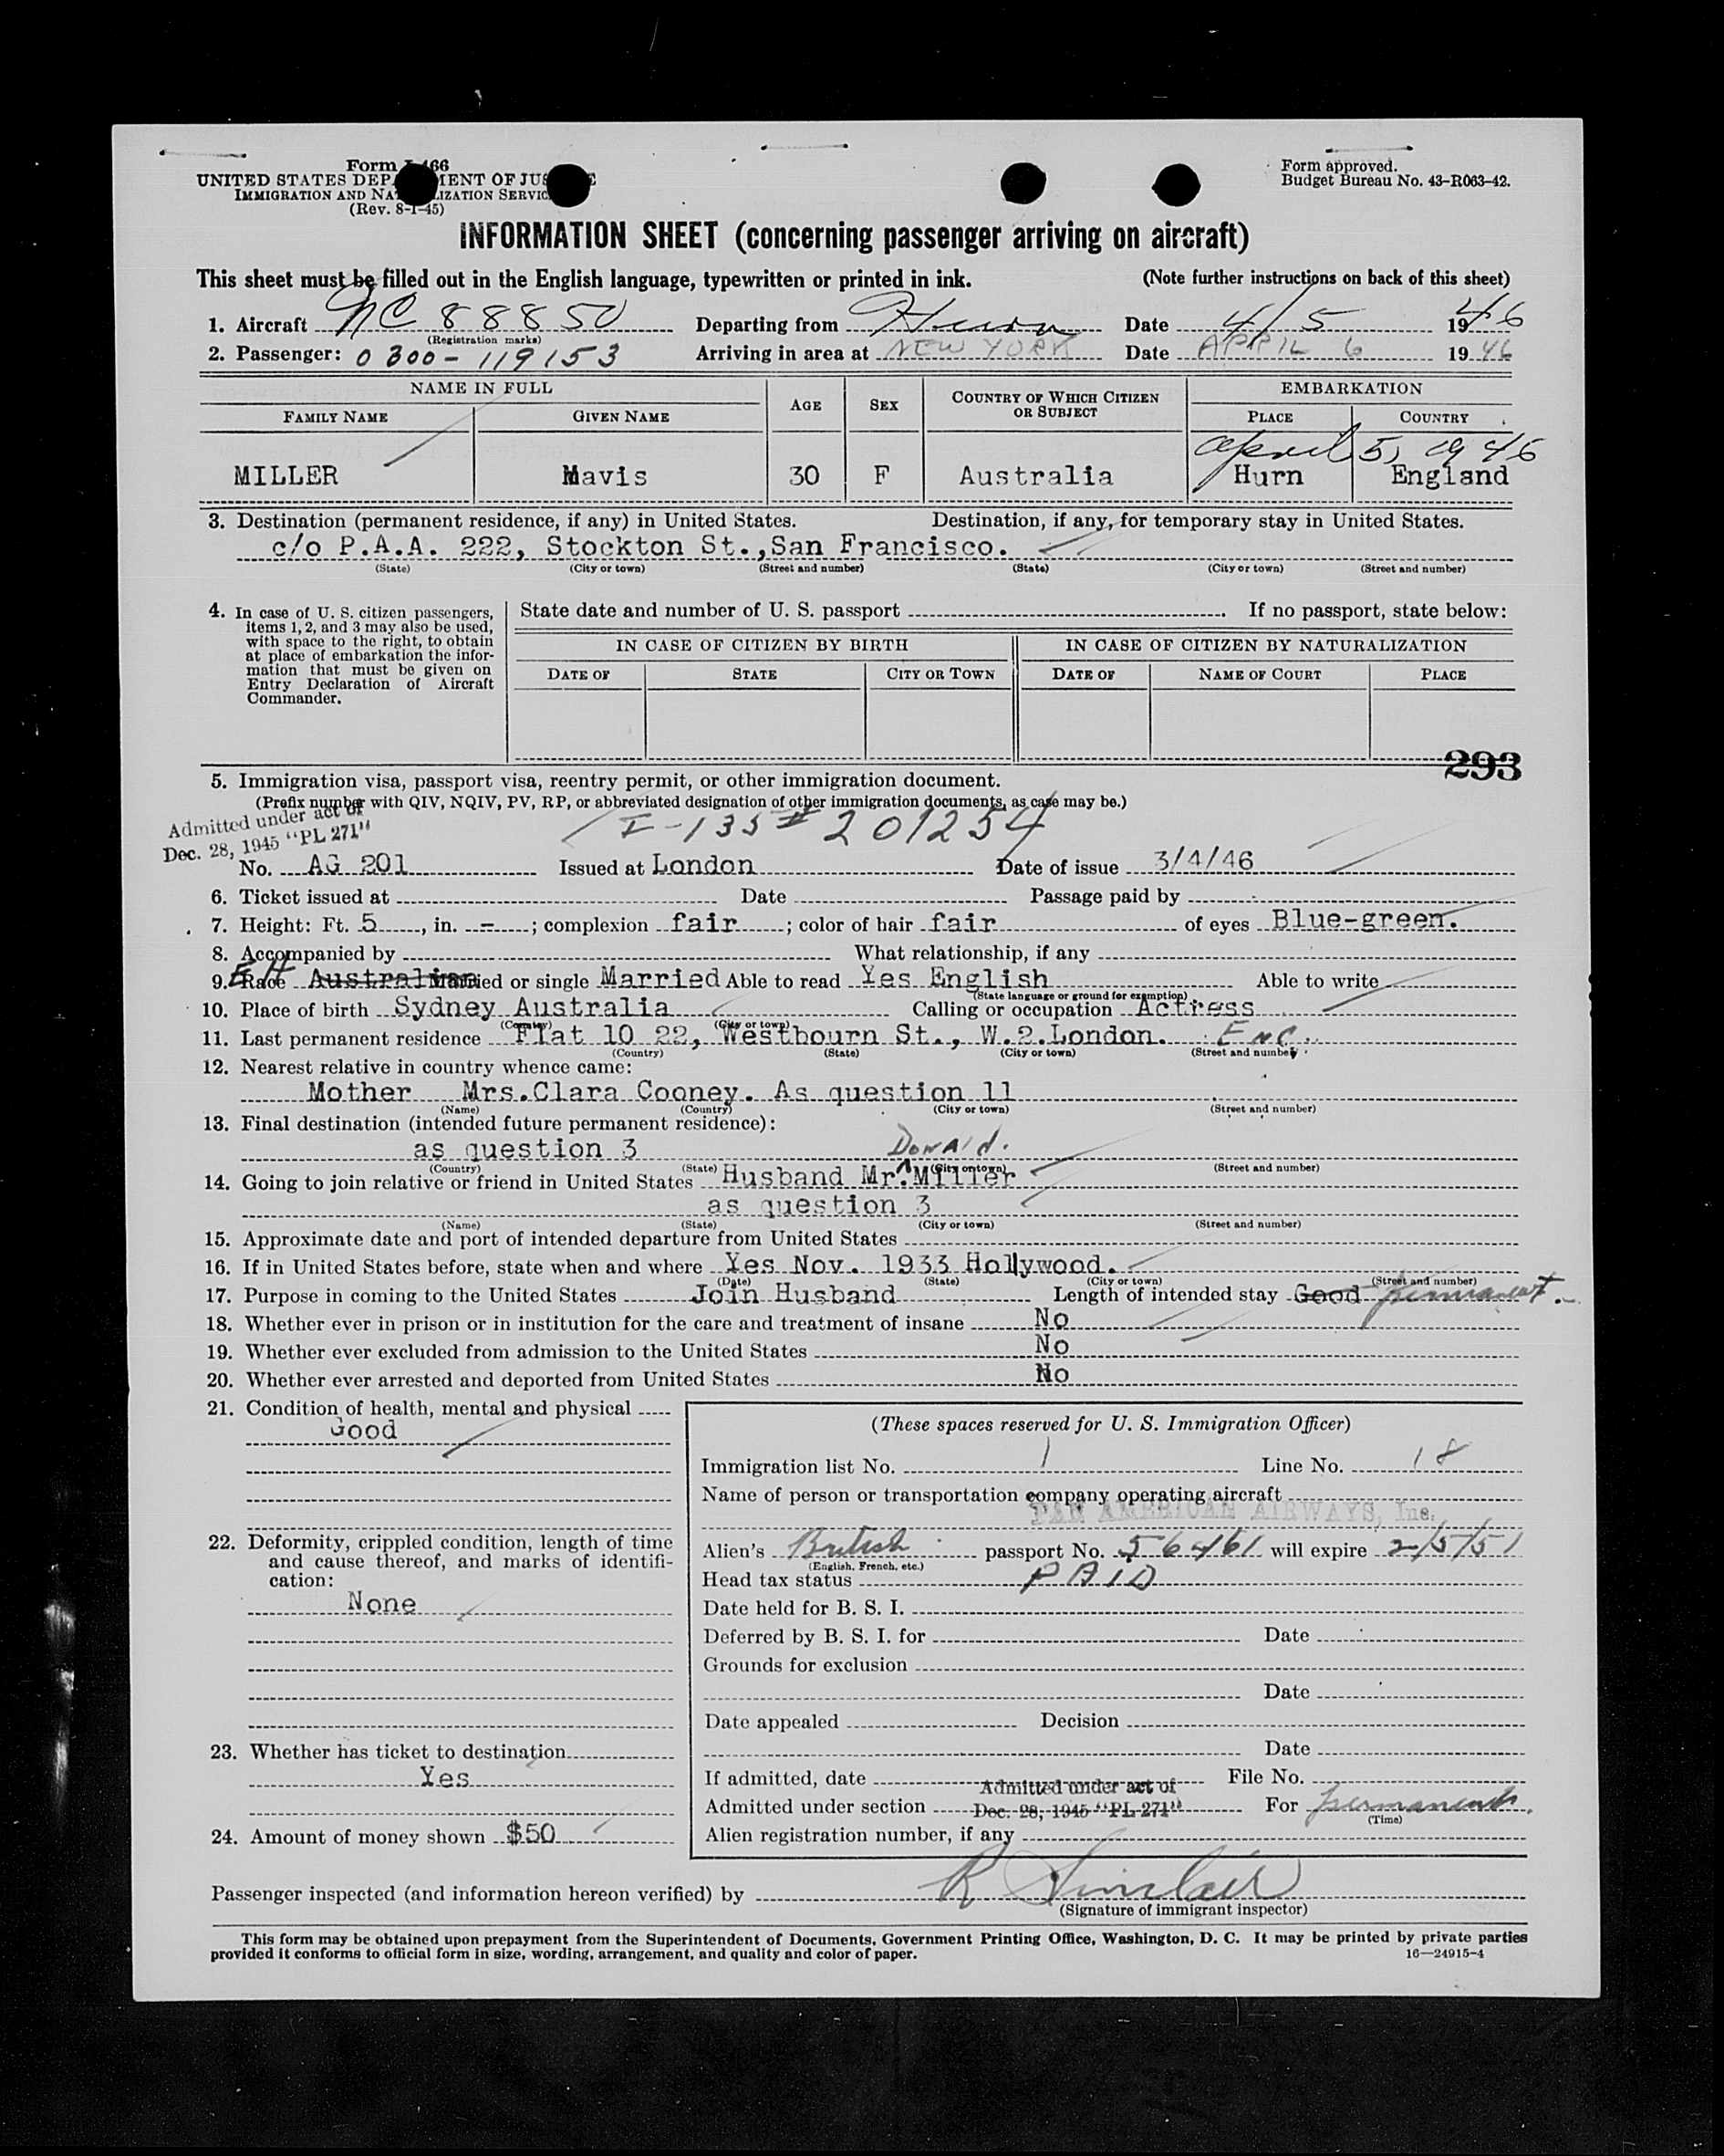 Form I-466
UNITED STATES DEPARTMENT OF JUSTICE
IMMIGRATION AND NATURALIZATION SERVICE
(Rev. 8-1-45)
Form approved.
Budget Bureau No. 43-R063-42.
INFORMATION SHEET (concerning passenger arriving on aircraft)
This sheet must be filled out in the English language, typewritten or printed in ink. (Note further instructions on back of this sheet)
1. Aircraft NC 88850 Departing from Hurn Date 4/5 1946
(Registration marks)
2. Passenger: 0300-119153 Arriving in area at NEW YORK Date APRIL 6 1946
NAME IN FULL AGE SEX COUNTRY OF WHICH CITIZEN OR SUBJECT EMBARKATION
FAMILY NAME GIVEN NAME PLACE COUNTRY
April 5, 1946
MILLER Mavis 30 F Australia Hurn England
3. Destination (permanent residence, if any) in United States. Destination, if any, for temporary stay in United States.
c/o P.A.A. 222, Stockton St., San Francisco.
(State) (City or town) (Street and number) (State) (City or town) (Street and number)
4. In case of U. S. citizen passengers, items 1, 2, and 3 may also be used, with space to the right, to obtain at place of embarkation the information that must be given on Entry Declaration of Aircraft Commander.
State date and number of U. S. passport . If no passport, state below:
IN CASE OF CITIZEN BY BIRTH IN CASE OF CITIZEN BY NATURALIZATION
DATE OF STATE CITY OR TOWN DATE OF NAME OF COURT PLACE
293
5. Immigration visa, passport visa, reentry permit, or other immigration document.
(Prefix number with QIV, NQIV, PV, RP, or abbreviated designation of other immigration documents, as case may be.)
Admitted under act of
Dec. 28, 1945 "PL 271"
I-135 # 201254
No. AG 201 Issued at London Date of issue 3/4/46
6. Ticket issued at Date Passage paid by
7. Height: Ft. 5, in. -; complexion fair; color of hair fair of eyes Blue-green.
8. Accompanied by What relationship, if any
9. Race Australian Married or single Married Able to read Yes English Able to write
(State language or ground for exemption)
10. Place of birth Sydney Australia Calling or occupation Actress
(Country) (City or town)
11. Last permanent residence Flat 10 22, Westbourn St., W.2.London. ENG.
(Country) (State) (City or town) (Street and number)
12. Nearest relative in country whence came:
Mother Mrs.Clara Cooney. As question 11
(Name) (Country) (City or town) (Street and number)
13. Final destination (intended future permanent residence):
as question 3
(Country) (State) (City or town) (Street and number)
Donald.
14. Going to join relative or friend in United States Husband Mr. Miller
as question 3
(Name) (State) (City or town) (Street and number)
15. Approximate date and port of intended departure from United States
16. If in United States before, state when and where Yes Nov. 1933 Hollywood.
(Date) (State) (City or town) (Street and number)
17. Purpose in coming to the United States Join Husband Length of intended stay Good permanent.
18. Whether ever in prison or in institution for the care and treatment of insane No
19. Whether ever excluded from admission to the United States No
20. Whether ever arrested and deported from United States No
21. Condition of health, mental and physical
Good
22. Deformity, crippled condition, length of time and cause thereof, and marks of identification:
None
23. Whether has ticket to destination
Yes
24. Amount of money shown $50
(These spaces reserved for U. S. Immigration Officer)
Immigration list No. 1 Line No. 18
Name of person or transportation company operating aircraft
PAN AMERICAN AIRWAYS, Inc.
Alien's British passport No. 56461 will expire 2/5/51
(English, French, etc.)
Head tax status PAID
Date held for B. S. I.
Deferred by B. S. I. for Date
Grounds for exclusion
Date
Date appealed Decision
Date
If admitted, date File No.
Admitted under act of
Admitted under section Dec. 28, 1945 "PL 271" For permanent.
(Time)
Alien registration number, if any
Passenger inspected (and information hereon verified) by R Sinclair
(Signature of immigrant inspector)
This form may be obtained upon prepayment from the Superintendent of Documents, Government Printing Office, Washington, D. C. It may be printed by private parties
provided it conforms to official form in size, wording, arrangement, and quality and color of paper. 16—24915-4